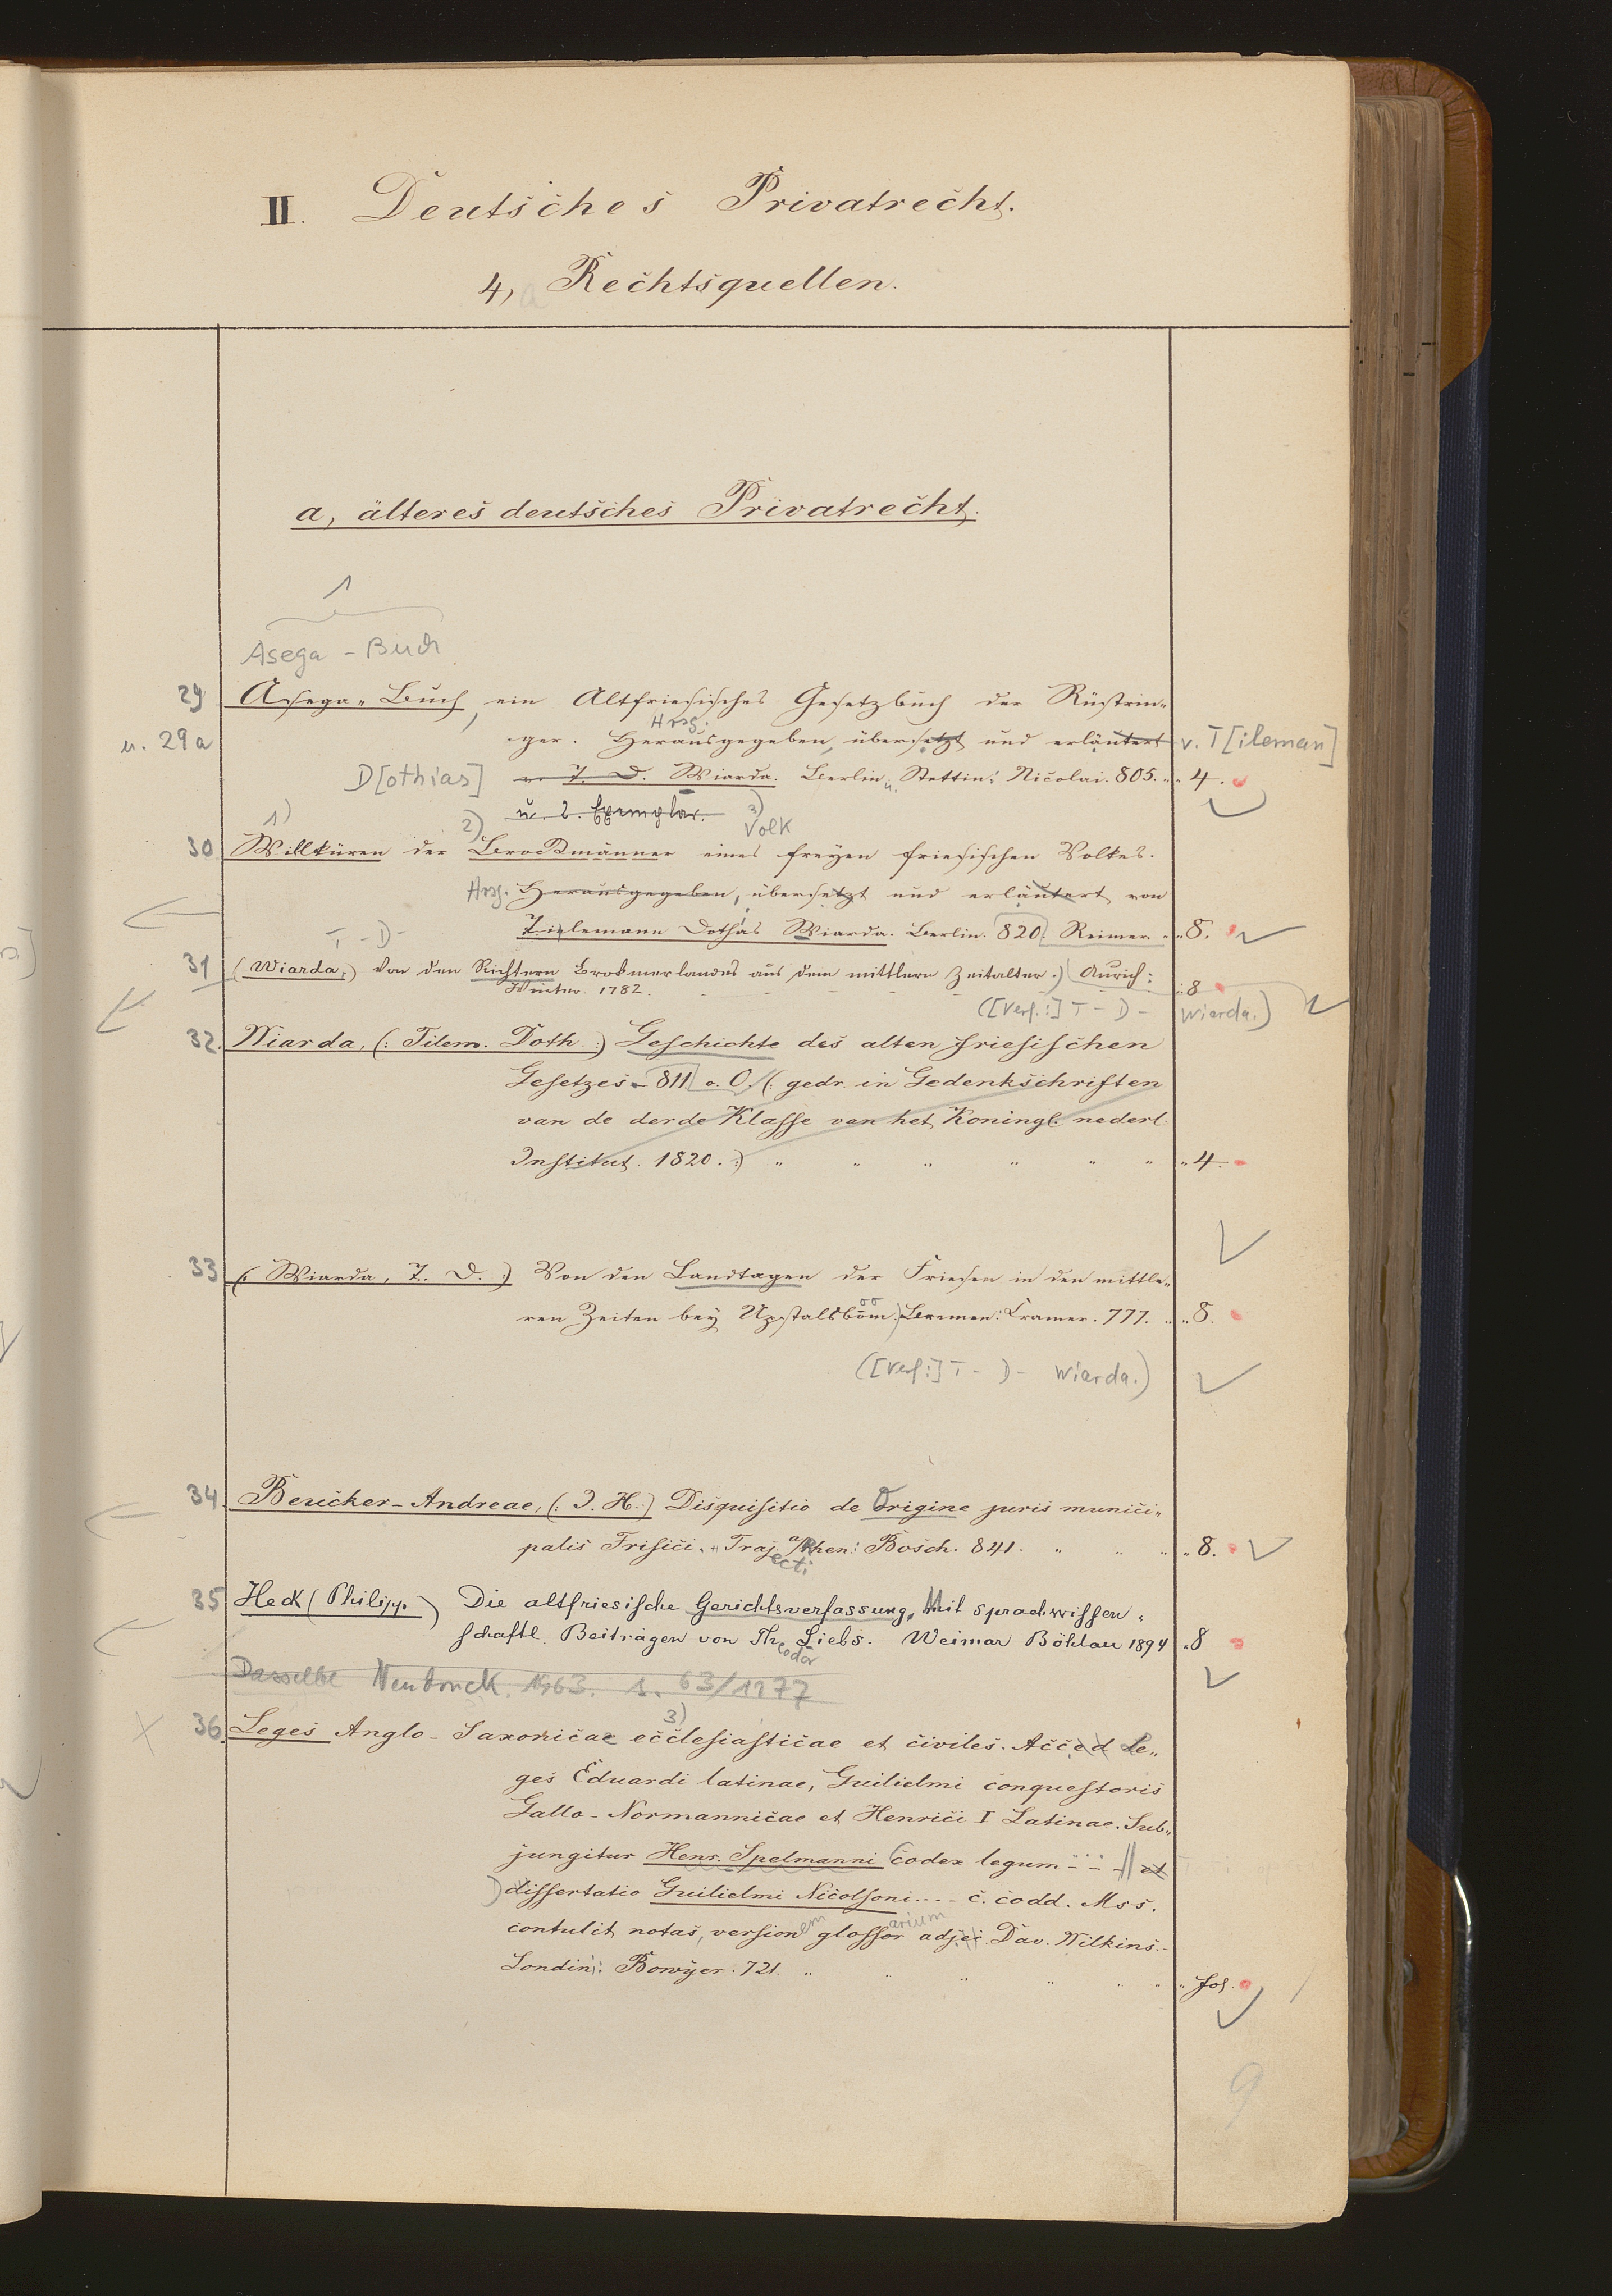 II. Deutsches Privatrecht.
4, a Rechtsquellen.
a, älteres deutsches Privatrecht.
1
Asega-Buch
29 Asega-Buch, ein Altfriesisches Gesetzbuch der Rüstrin-
Hrsg.
u. 29a ger. Herausgegeben, übersetzt und erläutert v. T[ileman]
D[othias] v. T. D. Wiarda. Berlin u. Stettin: Nicolai. 805. " 4.
u. 2. Exemplar.
1) 2) 3) Volk
30 Willküren der Brockmänner eines freyen friesischen Volkes.
Hrsg. Herausgegeben, übersetzt und erläutert von
Tielemann Dothias Wiarda. Berlin. 820. Reimer " 8.
T-D-
31 (Wiarda:) Von den Richtern Brokmerlandes aus dem mittlern Zeitalter.) Aurich:
Winter. 1782. " 8
([Verf.:] T-D- Wiarda.)
32. Wiarda, (: Tilem. Doth :) Geschichte des alten friesischen
Gesetzes 811 o. O. (: gedr. in Gedenkschriften
van de derde Klasse van het Koningl. nederl.
Institut. 1820. :) " " " " " " " 4.
33 (: Wiarda, T. D. :) Von den Landtagen der Friesen in den mittle-
ren Zeiten bey Upstalsbom.) Bremen: Cramer. 777. " 8.
([Verf:] T- D- Wiarda.)
34. Beucker-Andreae, (: J. H. :) Disquisitio de Origine juris munici-
palis Frisici. Trajecti a/Rhen: Bosch. 841. " " " " 8.
35 Heck (Philipp) Die altfriesische Gerichtsverfassung, Mit sprachwissen-
schaftl. Beiträgen von Theodor Siebs. Weimar Böhlau 1894 " 8
Dasselbe Neudruck. 1963. s. 63/1177
3)
36. Leges Anglo-Saxonicae ecclesiasticae et civiles. Acced Le-
ges Eduardi latinae, Guilielmi conquestoris
Gallo-Normannicae et Henrici I Latinae. Sub-
jungitur Henr. Spelmanni Codex legum - - - et
dissertatio Guilielmi Nicolsoni .... c. codd. Mss.
contulit, notas, versionem glossarium adjec. Dav. Wilkins.
Londin: Bowyer. 721. " " " " " " " fol.
9